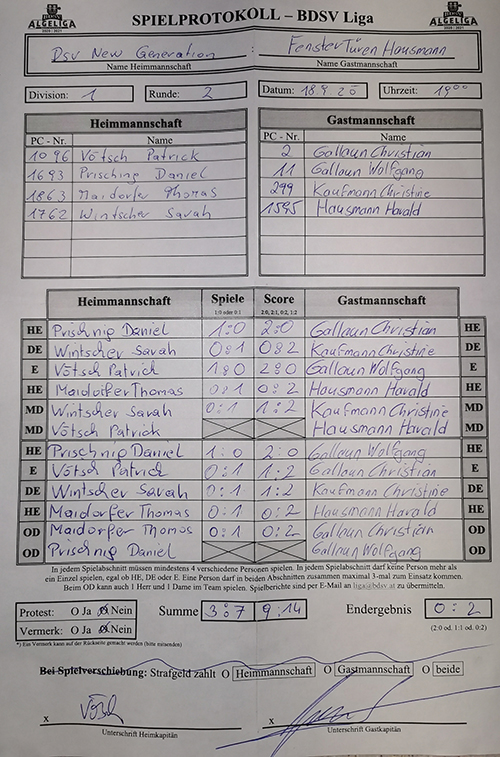 ALGELIGA
2020 - 2021
SPIELPROTOKOLL – BDSV Liga
ALGELIGA
2020 - 2021
Dsv New Generation : FensterTüren Hausmann
Name Heimmannschaft Name Gastmannschaft
Division: 1 Runde: 2 Datum: 18 9 20 Uhrzeit: 19⁰⁰
Heimmannschaft Gastmannschaft
PC - Nr. Name PC - Nr. Name
1096 Vötsch Patrick 2 Gallaun Christian
1693 Prisching Daniel 11 Gallaun Wolfgang
1863 Maidorfer Thomas 299 Kaufmann Christine
1762 Wintscher Sarah 1595 Hausmann Harald
Heimmannschaft Spiele Score Gastmannschaft
1:0 oder 0:1 2:0, 2:1, 0:2, 1:2
HE Prischnig Daniel 1:0 2:0 Gallaun Christian HE
DE Wintscher Sarah 0:1 0:2 Kaufmann Christine DE
E Vötsch Patrick 1:0 2:0 Gallaun Wolfgang E
HE Maidorfer Thomas 0:1 0:2 Hausmann Harald HE
MD Wintscher Sarah 0:1 1:2 Kaufmann Christine MD
MD Vötsch Patrick Hausmann Harald MD
HE Prischnig Daniel 1:0 2:0 Gallaun Wolfgang HE
E Vötsch Patrick 0:1 1:2 Gallaun Christian E
DE Wintscher Sarah 0:1 1:2 Kaufmann Christine DE
HE Maidorfer Thomas 0:1 0:2 Hausmann Harald HE
OD Maidorfer Thomas 0:1 0:2 Gallaun Christian OD
OD Prischnig Daniel Gallaun Wolfgang OD
In jedem Spielabschnitt müssen mindestens 4 verschiedene Personen spielen. In jedem Spielabschnitt darf keine Person mehr als
ein Einzel spielen, egal ob HE, DE oder E. Eine Person darf in beiden Abschnitten zusammen maximal 3-mal zum Einsatz kommen.
Beim OD kann auch 1 Herr und 1 Dame im Team spielen. Spielberichte sind per E-Mail an liga@bdsv.at zu übermitteln.
Protest: O Ja O Nein Summe 3:7 9:14 Endergebnis 0:2
Vermerk: O Ja O Nein (2:0 od. 1:1 od. 0:2)
*) Ein Vermerk kann auf der Rückseite gemacht werden (bitte ankreuzen)
Bei Spielverschiebung: Strafgeld zahlt O Heimmannschaft O Gastmannschaft O beide
X Vötsch X
Unterschrift Heimkapitän Unterschrift Gastkapitän